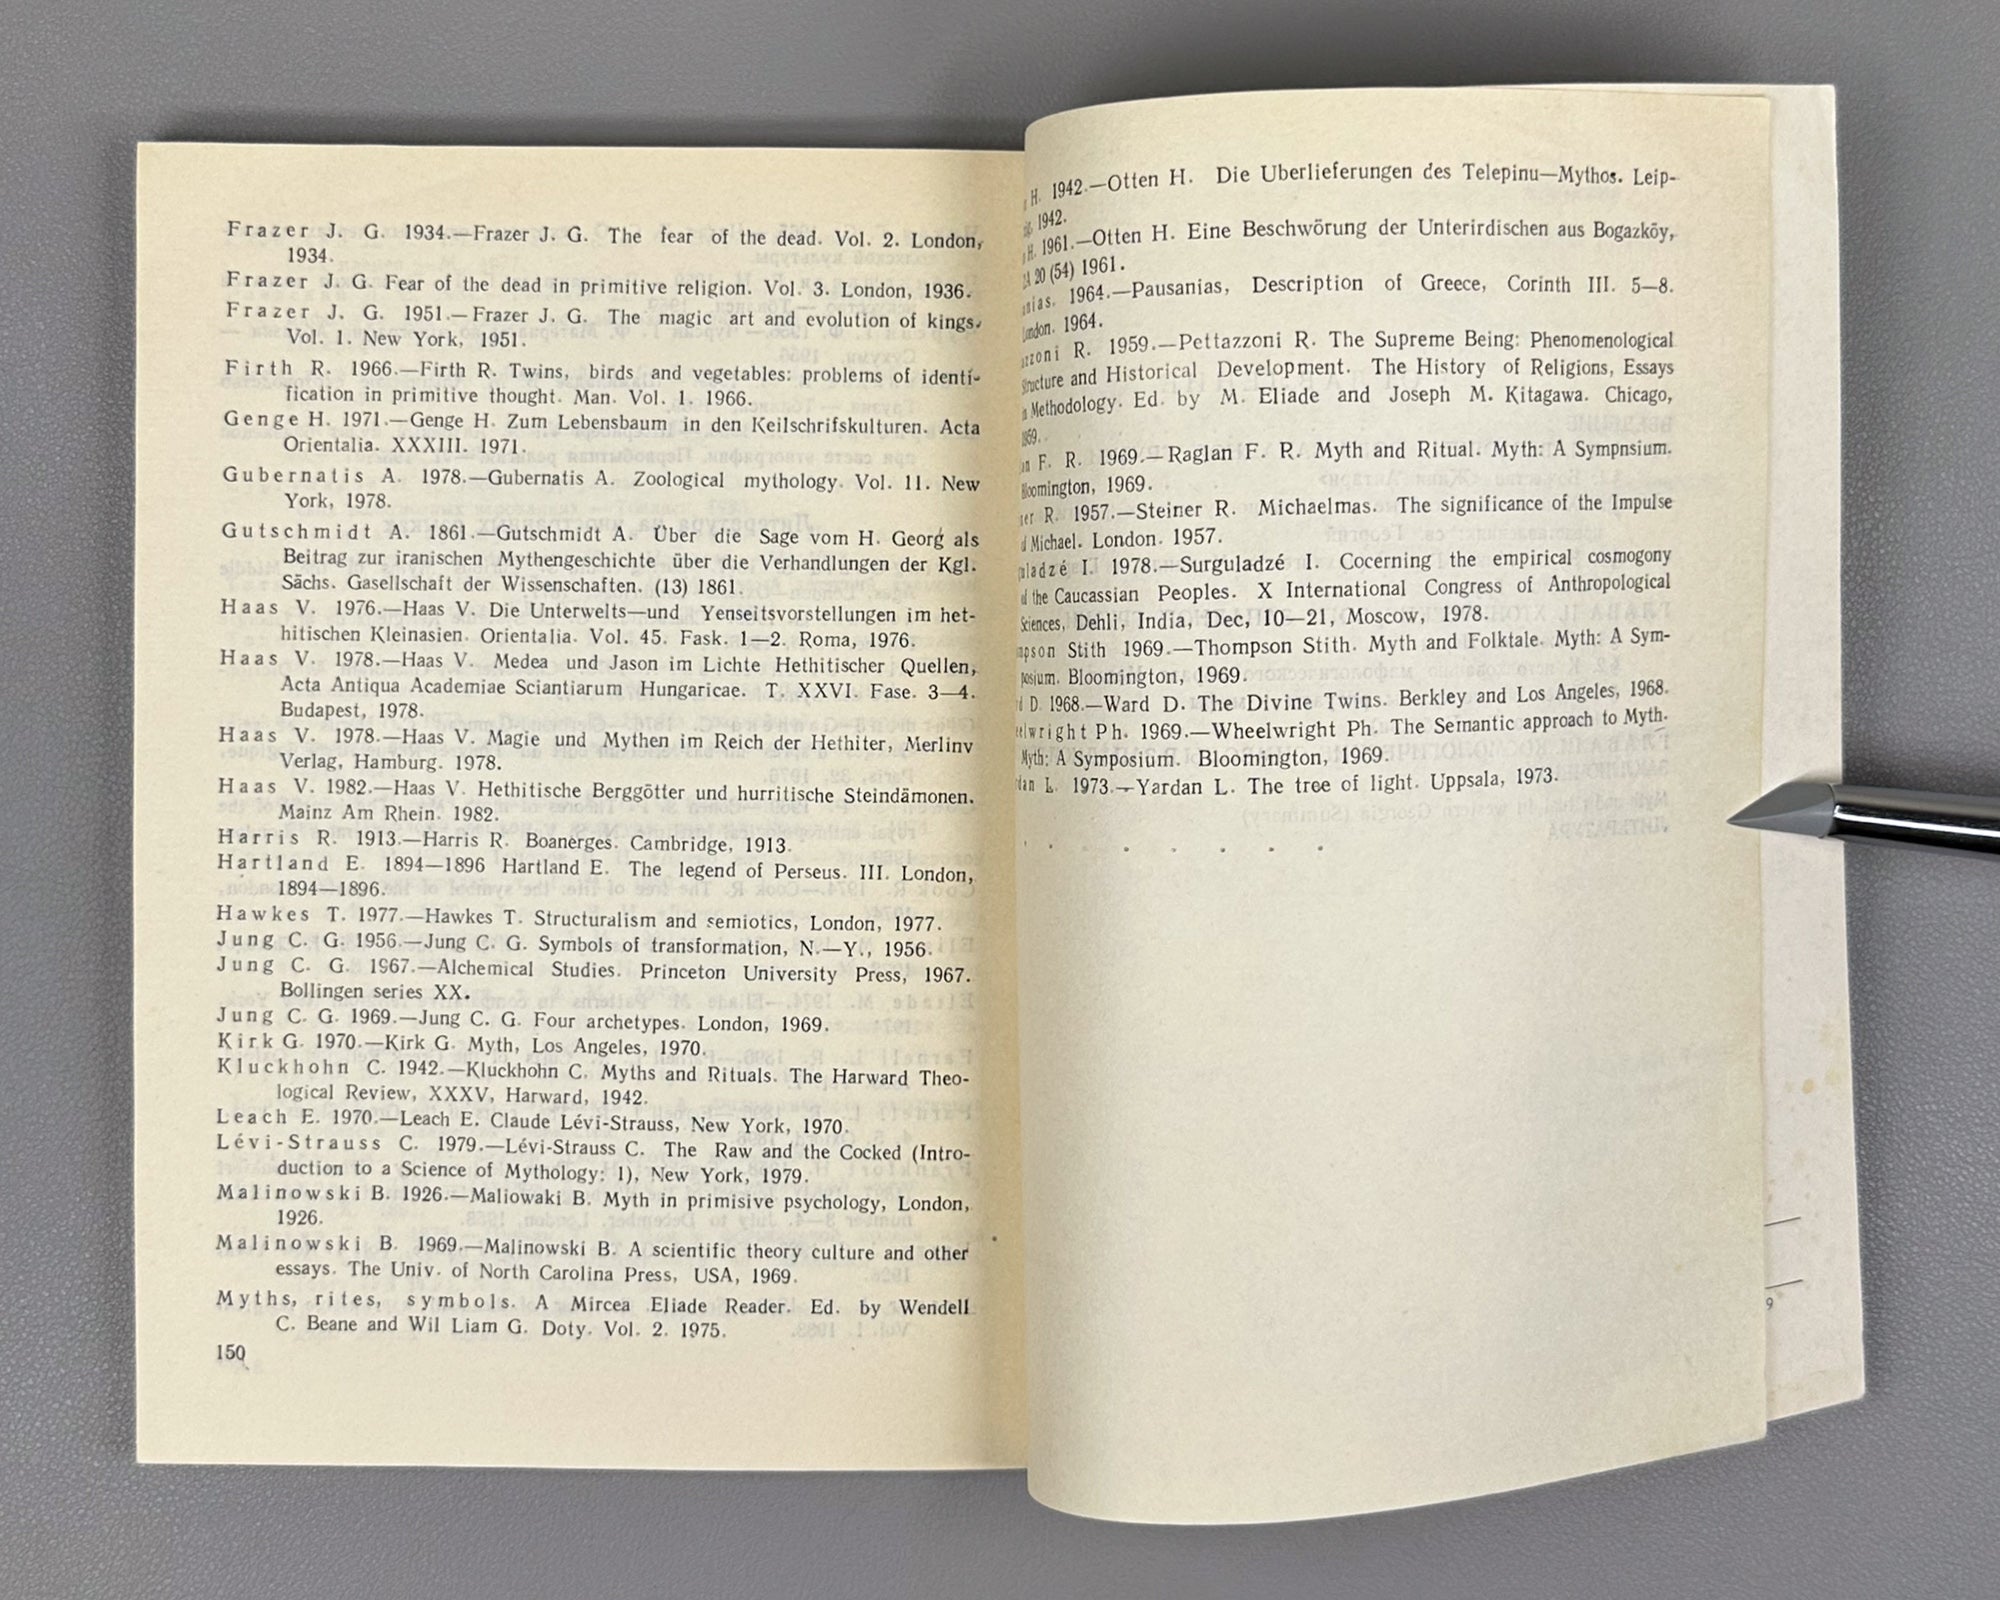 Frazer J. G. 1934.—Frazer J. G. The fear of the dead. Vol. 2. London,
1934.
Frazer J. G. Fear of the dead in primitive religion. Vol. 3. London, 1936.
Frazer J. G. 1951.—Frazer J. G. The magic art and evolution of kings.
Vol. 1. New York, 1951.
Firth R. 1966.—Firth R. Twins, birds and vegetables: problems of identi-
fication in primitive thought. Man. Vol. 1. 1966.
Genge H. 1971.—Genge H. Zum Lebensbaum in den Keilschrifskulturen. Acta
Orientalia. XXXIII. 1971.
Gubernatis A. 1978.—Gubernatis A. Zoological mythology. Vol. 11. New
York, 1978.
Gutschmidt A. 1861.—Gutschmidt A. Über die Sage vom H. Georg als
Beitrag zur iranischen Mythengeschichte über die Verhandlungen der Kgl.
Sächs. Gasellschaft der Wissenschaften. (13) 1861.
Haas V. 1976.—Haas V. Die Unterwelts—und Yenseitsvorstellungen im het-
hitischen Kleinasien. Orientalia. Vol. 45. Fask. 1—2. Roma, 1976.
Haas V. 1978.—Haas V. Medea und Jason im Lichte Hethitischer Quellen,
Acta Antiqua Academiae Sciantiarum Hungaricae. T. XXVI. Fase. 3—4.
Budapest, 1978.
Haas V. 1978.—Haas V. Magie und Mythen im Reich der Hethiter, Merlinv
Verlag, Hamburg. 1978.
Haas V. 1982.—Haas V. Hethitische Berggötter und hurritische Steindämonen.
Mainz Am Rhein. 1982.
Harris R. 1913.—Harris R. Boanerges. Cambridge, 1913.
Hartland E. 1894—1896 Hartland E. The legend of Perseus. III. London,
1894—1896.
Hawkes T. 1977.—Hawkes T. Structuralism and semiotics, London, 1977.
Jung C. G. 1956.—Jung C. G. Symbols of transformation, N.—Y., 1956.
Jung C. G. 1967.—Alchemical Studies. Princeton University Press, 1967.
Bollingen series XX.
Jung C. G. 1969.—Jung C. G. Four archetypes. London, 1969.
Kirk G. 1970.—Kirk G. Myth, Los Angeles, 1970.
Kluckhohn C. 1942.—Kluckhohn C. Myths and Rituals. The Harward Theo-
logical Review, XXXV, Harward, 1942.
Leach E. 1970.—Leach E. Claude Lévi-Strauss, New York, 1970.
Lévi-Strauss C. 1979.—Lévi-Strauss C. The Raw and the Cocked (Intro-
duction to a Science of Mythology: 1), New York, 1979.
Malinowski B. 1926.—Maliowaki B. Myth in primisive psychology, London,
1926.
Malinowski B. 1969.—Malinowski B. A scientific theory culture and other
essays. The Univ. of North Carolina Press, USA, 1969.
Myths, rites, symbols. A Mircea Eliade Reader. Ed. by Wendell
C. Beane and Wil Liam G. Doty. Vol. 2. 1975.
150
H. 1942.—Otten H. Die Uberlieferungen des Telepinu—Mythos. Leip-
1942.
H. 1961.—Otten H. Eine Beschwörung der Unterirdischen aus Bogazköy,
20 (54) 1961.
1964.—Pausanias, Description of Greece, Corinth III. 5—8.
London. 1964.
R. 1959.—Pettazzoni R. The Supreme Being: Phenomenological
Structure and Historical Development. The History of Religions, Essays
Methodology. Ed. by M. Eliade and Joseph M. Kitagawa. Chicago,
1959.
F. R. 1969.—Raglan F. R. Myth and Ritual. Myth: A Sympnsium.
Bloomington, 1969.
R. 1957.—Steiner R. Michaelmas. The significance of the Impulse
Michael. London. 1957.
I. 1978.—Surguladzé I. Cocerning the empirical cosmogony
of the Caucassian Peoples. X International Congress of Anthropological
Sciences, Dehli, India, Dec, 10—21, Moscow, 1978.
Stith 1969.—Thompson Stith. Myth and Folktale. Myth: A Sym-
posium. Bloomington, 1969.
D. 1968.—Ward D. The Divine Twins. Berkley and Los Angeles, 1968.
Ph. 1969.—Wheelwright Ph. The Semantic approach to Myth.
Myth: A Symposium. Bloomington, 1969.
L. 1973.—Yardan L. The tree of light. Uppsala, 1973.
9